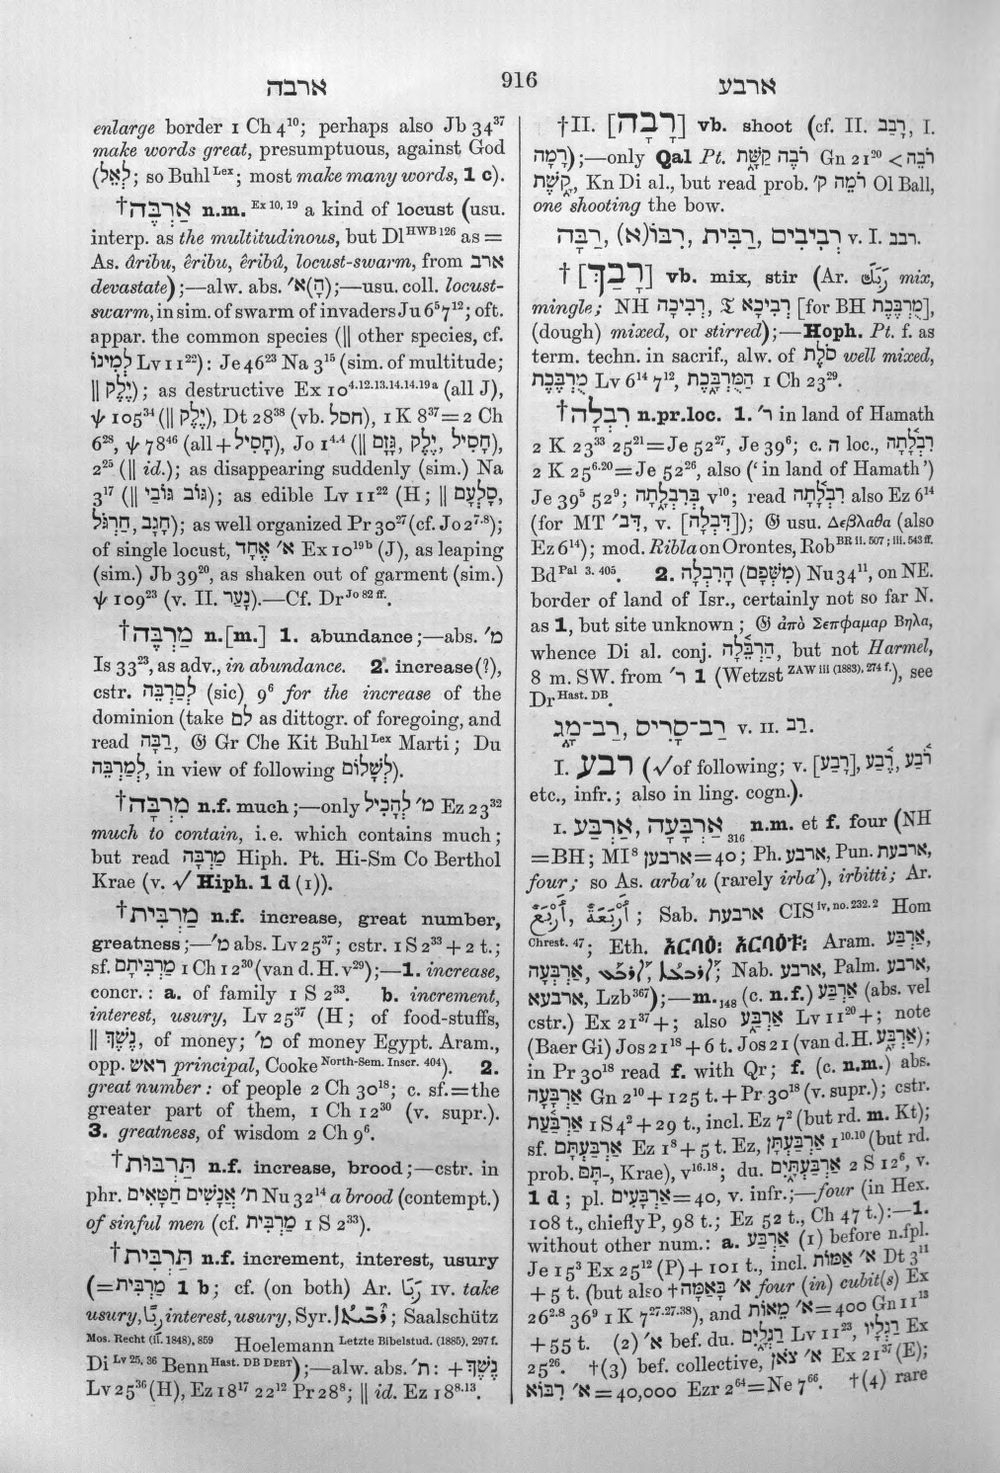 ארבה
916
ארבע
enlarge border 1 Ch 4¹⁰; perhaps also Jb 34³⁷
make words great, presumptuous, against God
(לְאֵל; so Buhl Lex; most make many words, 1 c).
†אַרְבֶּה n.m. Ex 10, 19 a kind of locust (usu.
interp. as the multitudinous, but Dl HWB 126 as =
As. âribu, êribu, êribû, locust-swarm, from ארב
devastate);—alw. abs. א׳(הָ);—usu. coll. locust-
swarm, in sim. of swarm of invaders Ju 6⁵ 7¹²; oft.
appar. the common species (|| other species, cf.
לְמִינוֹ Lv 11²²): Je 46²³ Na 3¹⁵ (sim. of multitude;
|| יֶלֶק); as destructive Ex 10⁴·¹²·¹³·¹⁴·¹⁴·¹⁹ᵃ (all J),
ψ 105³⁴ (|| יֶלֶק), Dt 28³⁸ (vb. חסל), 1 K 8³⁷=2 Ch
6²⁸, ψ 78⁴⁶ (all + חָסִיל), Jo 1⁴·⁴ (|| חָסִיל, יֶלֶק, גָּזָם),
2²⁵ (|| id.); as disappearing suddenly (sim.) Na
3¹⁷ (|| גּוֹב גּוֹבָי); as edible Lv 11²² (H; || סָלְעָם,
חָגָב, חַרְגֹּל); as well organized Pr 30²⁷ (cf. Jo 2⁷·⁸);
of single locust, א׳ אֶחָד Ex 10¹⁹ᵇ (J), as leaping
(sim.) Jb 39²⁰, as shaken out of garment (sim.)
ψ 109²³ (v. II. נָעַר).—Cf. Dr Jo 82 ff.
†מַרְבֶּה n.[m.] 1. abundance;—abs. מ׳
Is 33²³, as adv., in abundance. 2. increase(?),
cstr. לְםַרְבֵּה (sic) 9⁶ for the increase of the
dominion (take לם as dittogr. of foregoing, and
read רַבָּה, 𝔊 Gr Che Kit Buhl Lex Marti; Du
לְמַרְבֵּה, in view of following לְשָׁלוֹם).
†מִרְבָּה n.f. much;—only מ׳ לְהָכִיל Ez 23³²
much to contain, i.e. which contains much;
but read מַרְבָּה Hiph. Pt. Hi-Sm Co Berthol
Krae (v. √ Hiph. 1 d (1)).
†מַרְבִּית n.f. increase, great number,
greatness;—מ׳ abs. Lv 25³⁷; cstr. 1 S 2³³ + 2 t.;
sf. מַרְבִּיתָם 1 Ch 12³⁰ (van d. H. v²⁹);—1. increase,
concr.: a. of family 1 S 2³³. b. increment,
interest, usury, Lv 25³⁷ (H; of food-stuffs,
|| נֶשֶׁךְ, of money; מ׳ of money Egypt. Aram.,
opp. ראש principal, Cooke North-Sem. Inscr. 404). 2.
great number: of people 2 Ch 30¹⁸; c. sf.=the
greater part of them, 1 Ch 12³⁰ (v. supr.).
3. greatness, of wisdom 2 Ch 9⁶.
†תַּרְבּוּת n.f. increase, brood;—cstr. in
phr. ת׳ אֲנָשִׁים חַטָּאִים Nu 32¹⁴ a brood (contempt.)
of sinful men (cf. מַרְבִּית 1 S 2³³).
†תַּרְבִּית n.f. increment, interest, usury
(=מַרְבִּית 1 b; cf. (on both) Ar. رَبَا IV. take
usury, رِبًا interest, usury, Syr.; Saalschütz
Mos. Recht (ii. 1848), 859 Hoelemann Letzte Bibelstud. (1885), 297 f.
Di Lv 25, 36 Benn Hast. DB DEBT);—alw. abs. ת׳: + נֶשֶׁךְ
Lv 25³⁶ (H), Ez 18¹⁷ 22¹² Pr 28⁸; || id. Ez 18⁸·¹³.
†II. [רָבָה] vb. shoot (cf. II. רבב, I.
רָמָה);—only Qal Pt. רֹבֶה קַשָּׁת Gn 21²⁰ < רֹבֵה
קֶשֶׁת, Kn Di al., but read prob. רֹמֵה ק׳ Ol Ball,
one shooting the bow.
רַבָּה, רִבּוֹ(א), רַבִּית, רְבִיבִים v. I. רבב.
†[רָבַךְ] vb. mix, stir (Ar. رَبَكَ mix,
mingle; NH רְבִיכָה, 𝔗 רְבִיכָא [for BH מֻרְבֶּכֶת],
(dough) mixed, or stirred);—Hoph. Pt. f. as
term. techn. in sacrif., alw. of סֹלֶת well mixed,
מֻרְבֶּכֶת Lv 6¹⁴ 7¹², הַמֻּרְבָּכֶת 1 Ch 23²⁹.
†רִבְלָה n.pr.loc. 1. ר׳ in land of Hamath
2 K 23³³ 25²¹=Je 52²⁷, Je 39⁶; c. ה loc., רִבְלָתָה
2 K 25⁶·²⁰=Je 52²⁶, also (‘in land of Hamath’)
Je 39⁵ 52⁹; בְּרִבְלָתָה v¹⁰; read רִבְלָתָה also Ez 6¹⁴
(for MT דִּב׳, v. [דִּבְלָה]); 𝔊 usu. Δεβλαθα (also
Ez 6¹⁴); mod. Ribla on Orontes, Rob BR ii. 507; iii. 543 ff.
Bd Pal 3. 405. 2. הָרִבְלָה (מִשְּׁפָם) Nu 34¹¹, on NE.
border of land of Isr., certainly not so far N.
as 1, but site unknown; 𝔊 ἀπὸ Σεπφαμαρ Βηλα,
whence Di al. conj. הַרְבֵּלָה, but not Harmel,
8 m. SW. from ר׳ 1 (Wetzst ZAW iii (1883), 274 f.), see
Dr Hast. DB.
רַב־סָרִיס, רַב־מָג v. II. רַב.
I. רבע (√ of following; v. [רָבַע], רֶבַע, רֹבַע
etc., infr.; also in ling. cogn.).
I. אַרְבַּע, אַרְבָּעָה 316 n.m. et f. four (NH
=BH; MI⁸ ארבען=40; Ph. ארבע, Pun. ארבעת,
four; so As. arba’u (rarely irba’), irbitti; Ar.
أَرْبَعٌ, أَرْبَعَةٌ; Sab. ארבעת CIS iv, no. 232. 2 Hom
Chrest. 47; Eth. አርባዕ: አርባዕቱ: Aram. אַרְבַּע,
אַרְבָּעָה, Nab. ארבע, Palm. ארבע,
ארבעא, Lzb³⁶⁷);—m.148 (c. n.f.) אַרְבַּע (abs. vel
cstr.) Ex 21³⁷ +; also אַרְבַּע Lv 11²⁰ +; note
(Baer Gi) Jos 21¹⁸ + 6 t. Jos 21 (van d. H. אַרְבַּע);
in Pr 30¹⁸ read f. with Qr; f. (c. n.m.) abs.
אַרְבָּעָה Gn 2¹⁰ + 125 t. + Pr 30¹⁸ (v. supr.); cstr.
אַרְבַּעַת 1 S 4² + 29 t., incl. Ez 7² (but rd. m. Kt);
sf. אַרְבַּעְתָּם Ez 1⁸ + 5 t. Ez, אַרְבַּעְתָּן 1¹⁰·¹⁰ (but rd.
prob. תָּם-, Krae), v¹⁶·¹⁸; du. אַרְבַּעְתָּיִם 2 S 12⁶, v.
1 d; pl. אַרְבָּעִים=40, v. infr.;—four (in Hex.
108 t., chiefly P, 98 t.; Ez 52 t., Ch 47 t.):—1.
without other num.: a. אַרְבַּע (1) before n.fpl.
Je 15³ Ex 25¹² (P) + 101 t., incl. א׳ אַמּוֹת Dt 3¹¹
+ 5 t. (but also †א׳ בָּאַמָּה four (in) cubit(s) Ex
26²·⁸ 36⁹ 1 K 7²⁷·²⁷·³⁸), and א׳ מֵאוֹת=400 Gn 11¹³
+ 55 t. (2) א׳ bef. du. רַגְלַיִם Lv 11²³, רַגְלָיו Ex
25²⁶. †(3) bef. collective, א׳ צֹאן Ex 21³⁷ (E);
א׳ רִבּוֹא=40,000 Ezr 2⁶⁴=Ne 7⁶⁶. †(4) rare